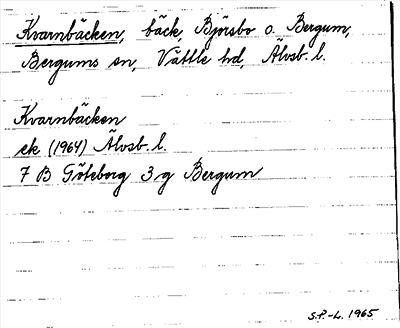 Kvarnbäcken, bäck, Björsbo o. Bergum,
Bergums sn, Vättle hd, Älvsb. l.
Kvarnbäcken
ek (1964) Älvsb. l.
7 B Göteborg 3 g Bergum
S.P.-L. 1965